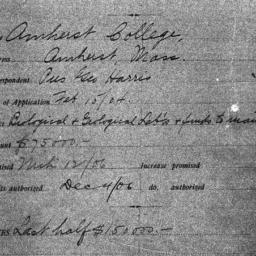 Amherst College,
Amherst, Mass.
pondent Pres Geo Harris
of Application Feb 15/04.
Biological & Geological Lab's & funds to main
unt $75000.-
ised Mch 12/06 Increase promised
ts authorized Dec 4/06 do. authorized
ES Last half $150000.-